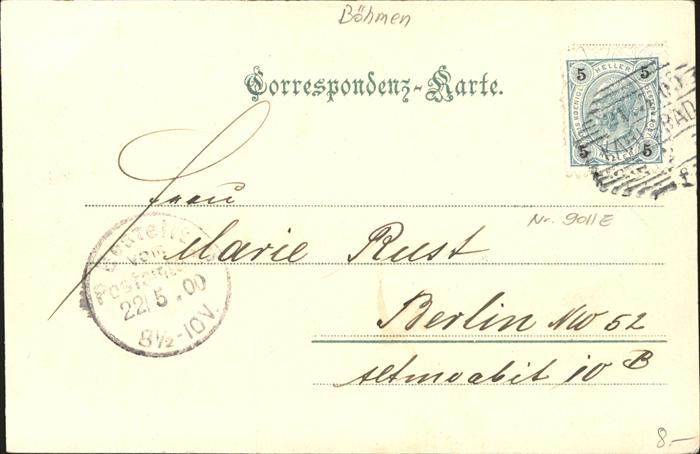 Böhmen
Correspondenz-Karte.
5 HELLER 5
5 HELLER 5
KARLSBAD
Frau
Nr. 9011E
Marie Rust
Bestellt
vom
Postamte
22/5.00
8½-10V.
Berlin NW 52
Altmoabit 10 B
8.-